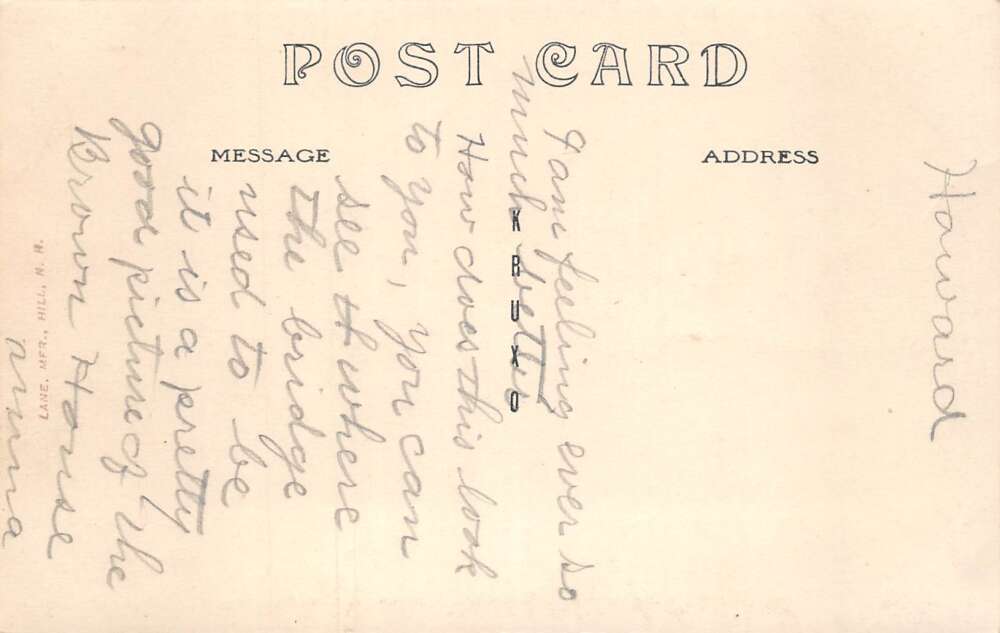 POST CARD
MESSAGE
ADDRESS
Howard
I am feeling ever so
much better
How does this look
to you, you can
see where
the bridge
used to be
it is a pretty
good picture of the
Brown House
Anna
KRUXO
LANE, MFR., HILL, N. H.